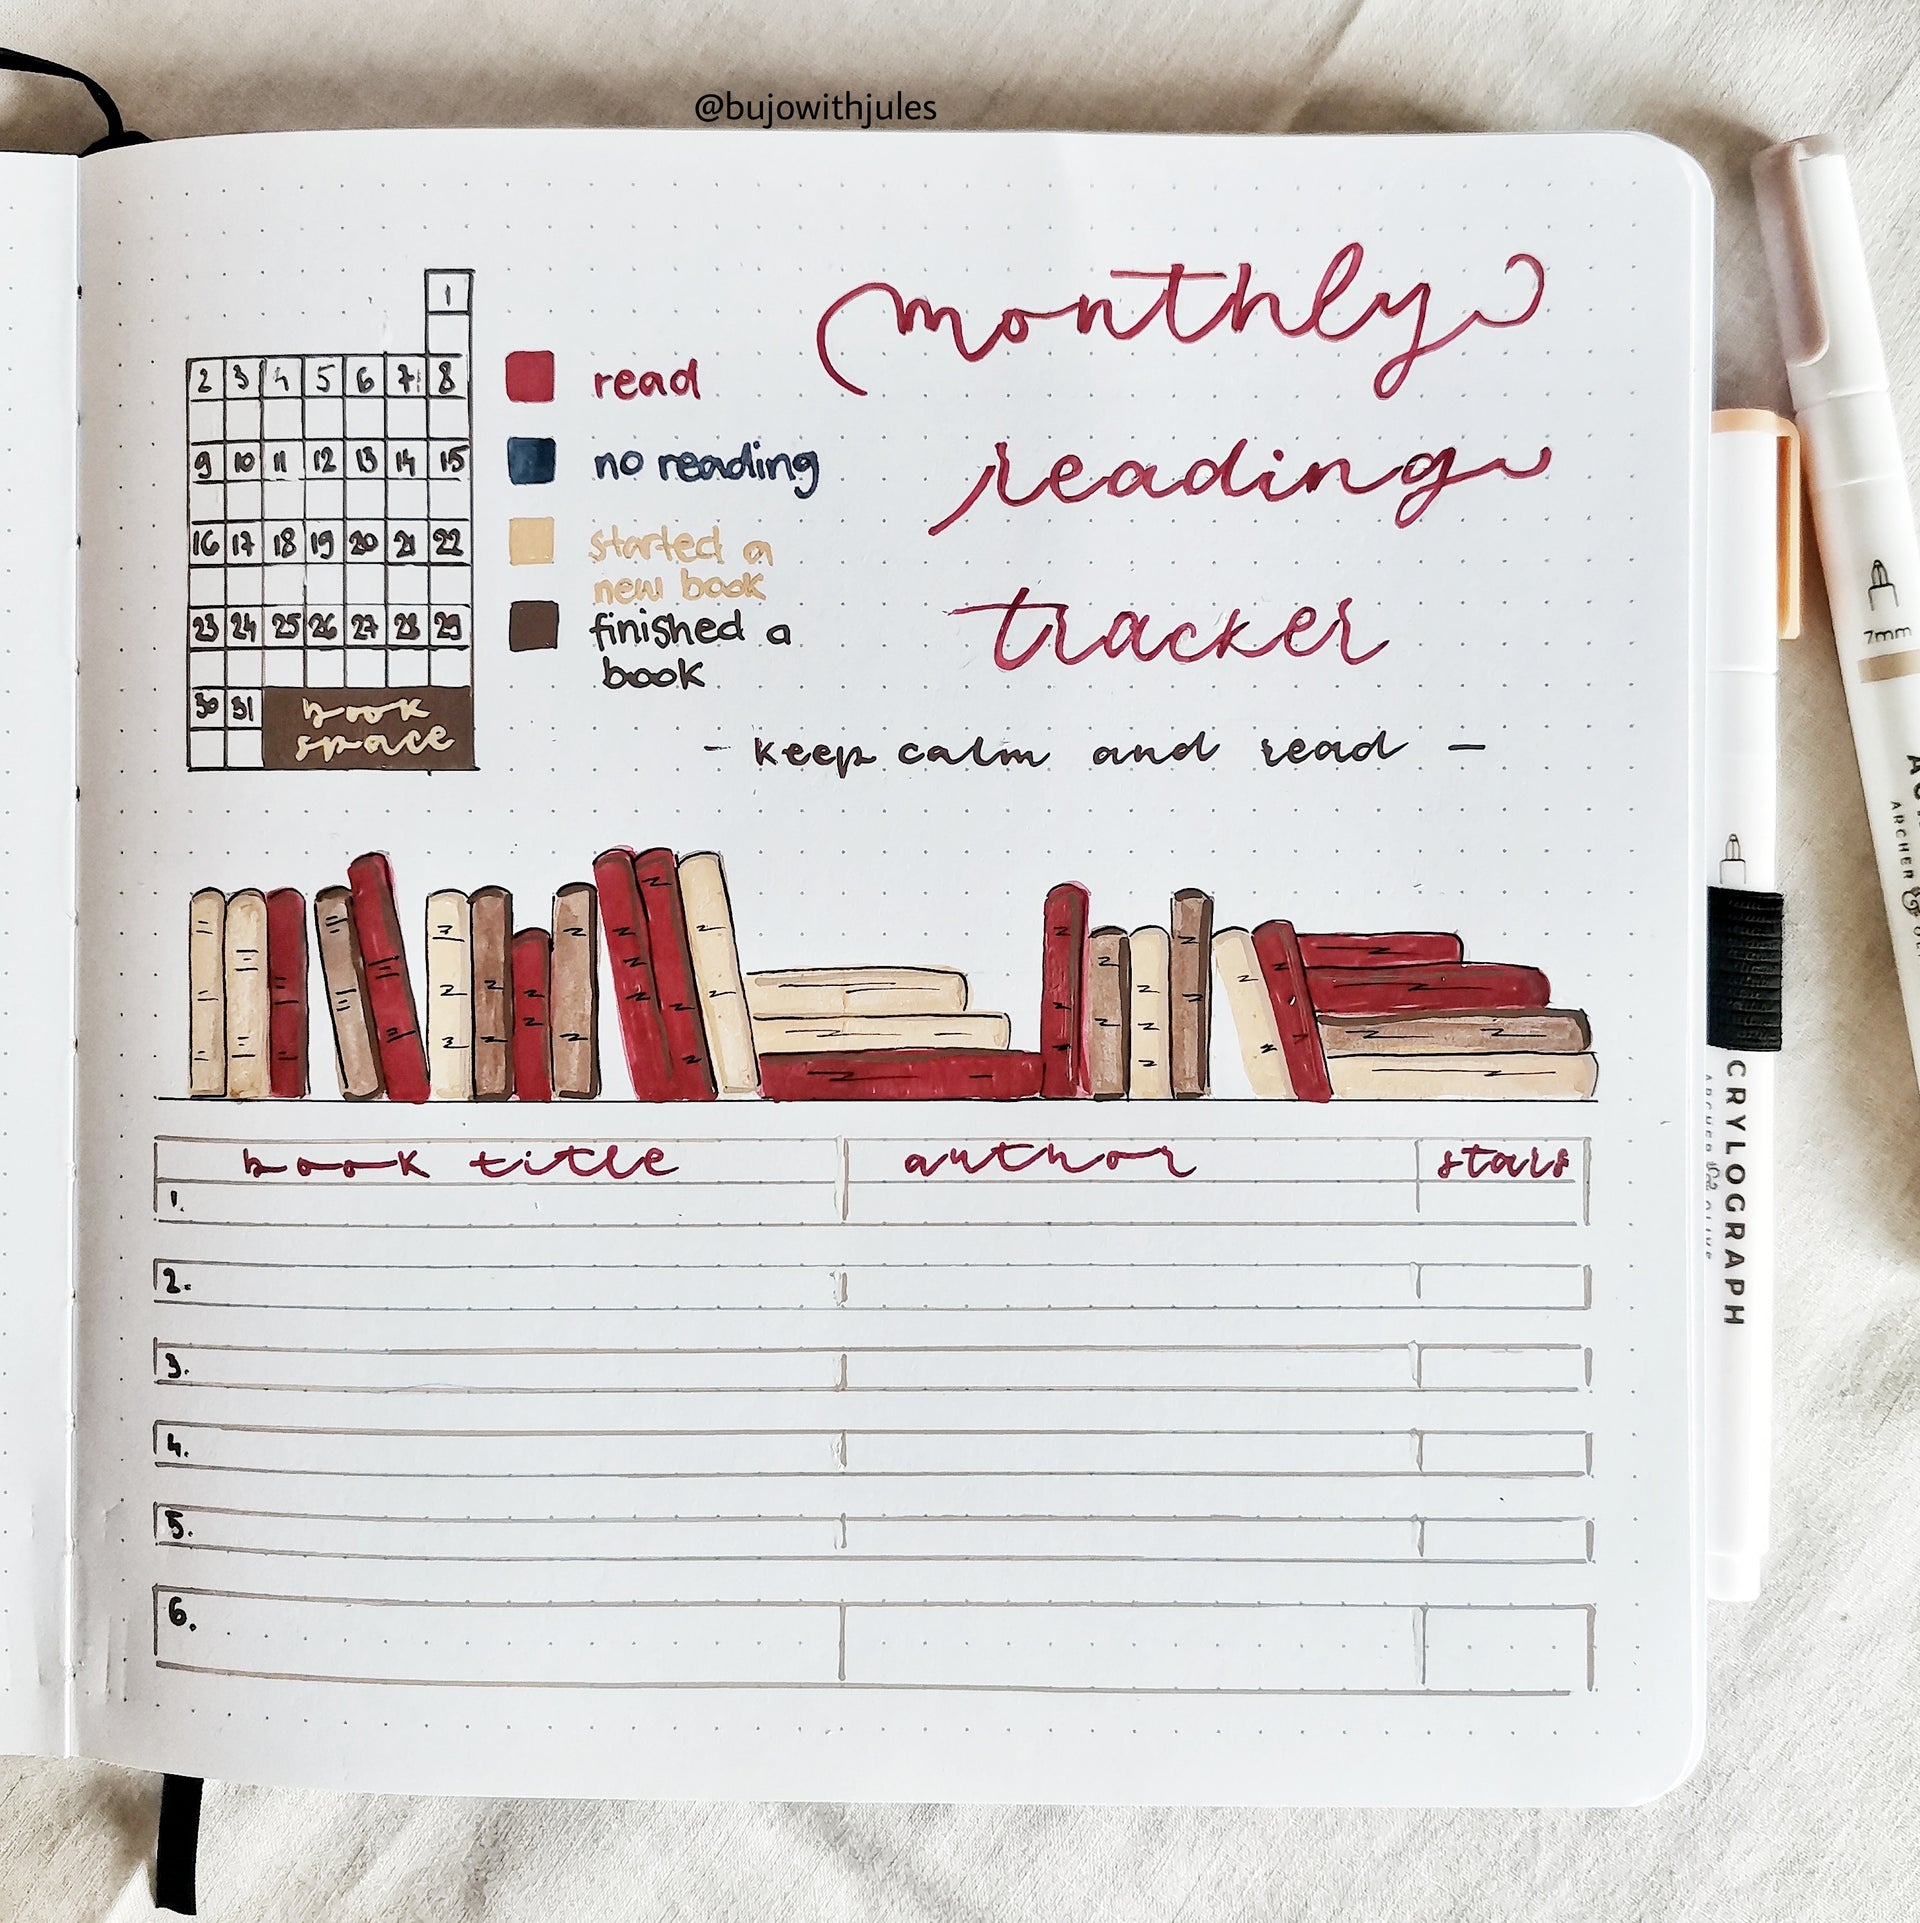 @bujowithjules
monthly
reading
tracker
- keep calm and read -
1
2 3 4 5 6 7 8
9 10 11 12 13 14 15
16 17 18 19 20 21 22
23 24 25 26 27 28 29
30 31
book
space
read
no reading
started a
new book
finished a
book
book title author stars
1.
2.
3.
4.
5.
6.
7mm
ARCHER &
CRYLOGRAPH
ARCHER & OLIVE